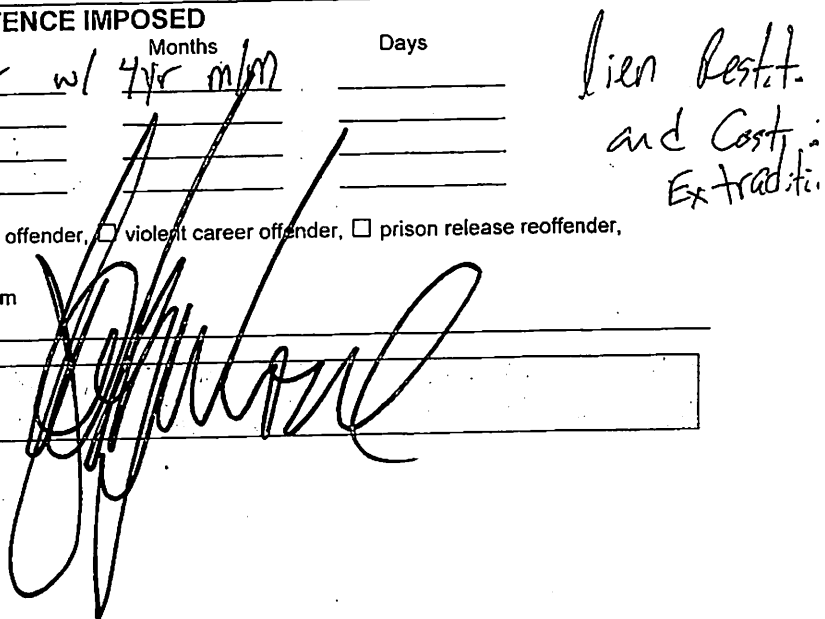 TENCE IMPOSED
Months Days
w/ 4yr m/m
lien Restit.
and Cost
Extraditi
offender, ☐ violent career offender, ☐ prison release reoffender,
m